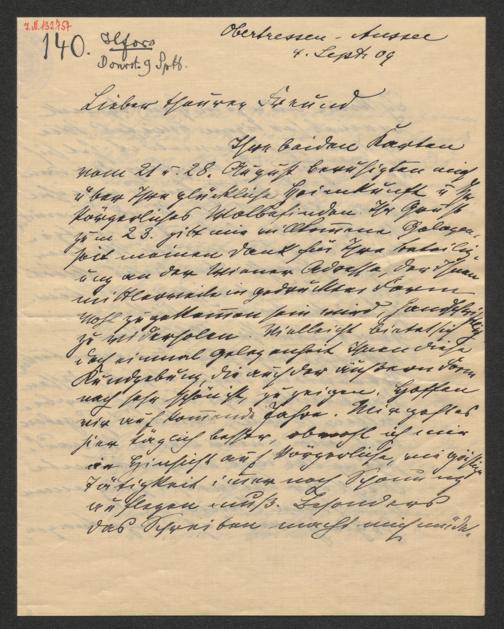 J.N. 132.757
140. Ilford
Donnerst. 9 Sptb.
Obertressen-Aussee
4. Sept. 09
Lieber theurer Freund
Ihre beiden Karten
vom 21 u. 28. August beruhigten mich
über Ihre glückliche Heimkunft u. Ihr
körperliches Wolbefinden. Ihr Gruß
zum 23. gibt mir willkommene Gelegen-
heit meinen Dank für Ihre Beteilig-
ung an der Wiener Adresse, der Ihnen
mittlerweile in gedruckter Form
wohl zugekommen sein wird handschriftlich
zu widerholen. Vielleicht bietet sich
doch einmal Gelegenheit Ihnen diese
Kundgebung, die auch der äußern Form
nach sehr schön ist, zu zeigen. Hoffen
wir auf kommende Jahre. Mir geht es
hier täglich besser, obwohl ich mir
in Hinsicht auf körperliche wie geistige
Tätigkeit immer noch Schonung
auflegen muß. Besonders
das Schreiben macht mich müde.